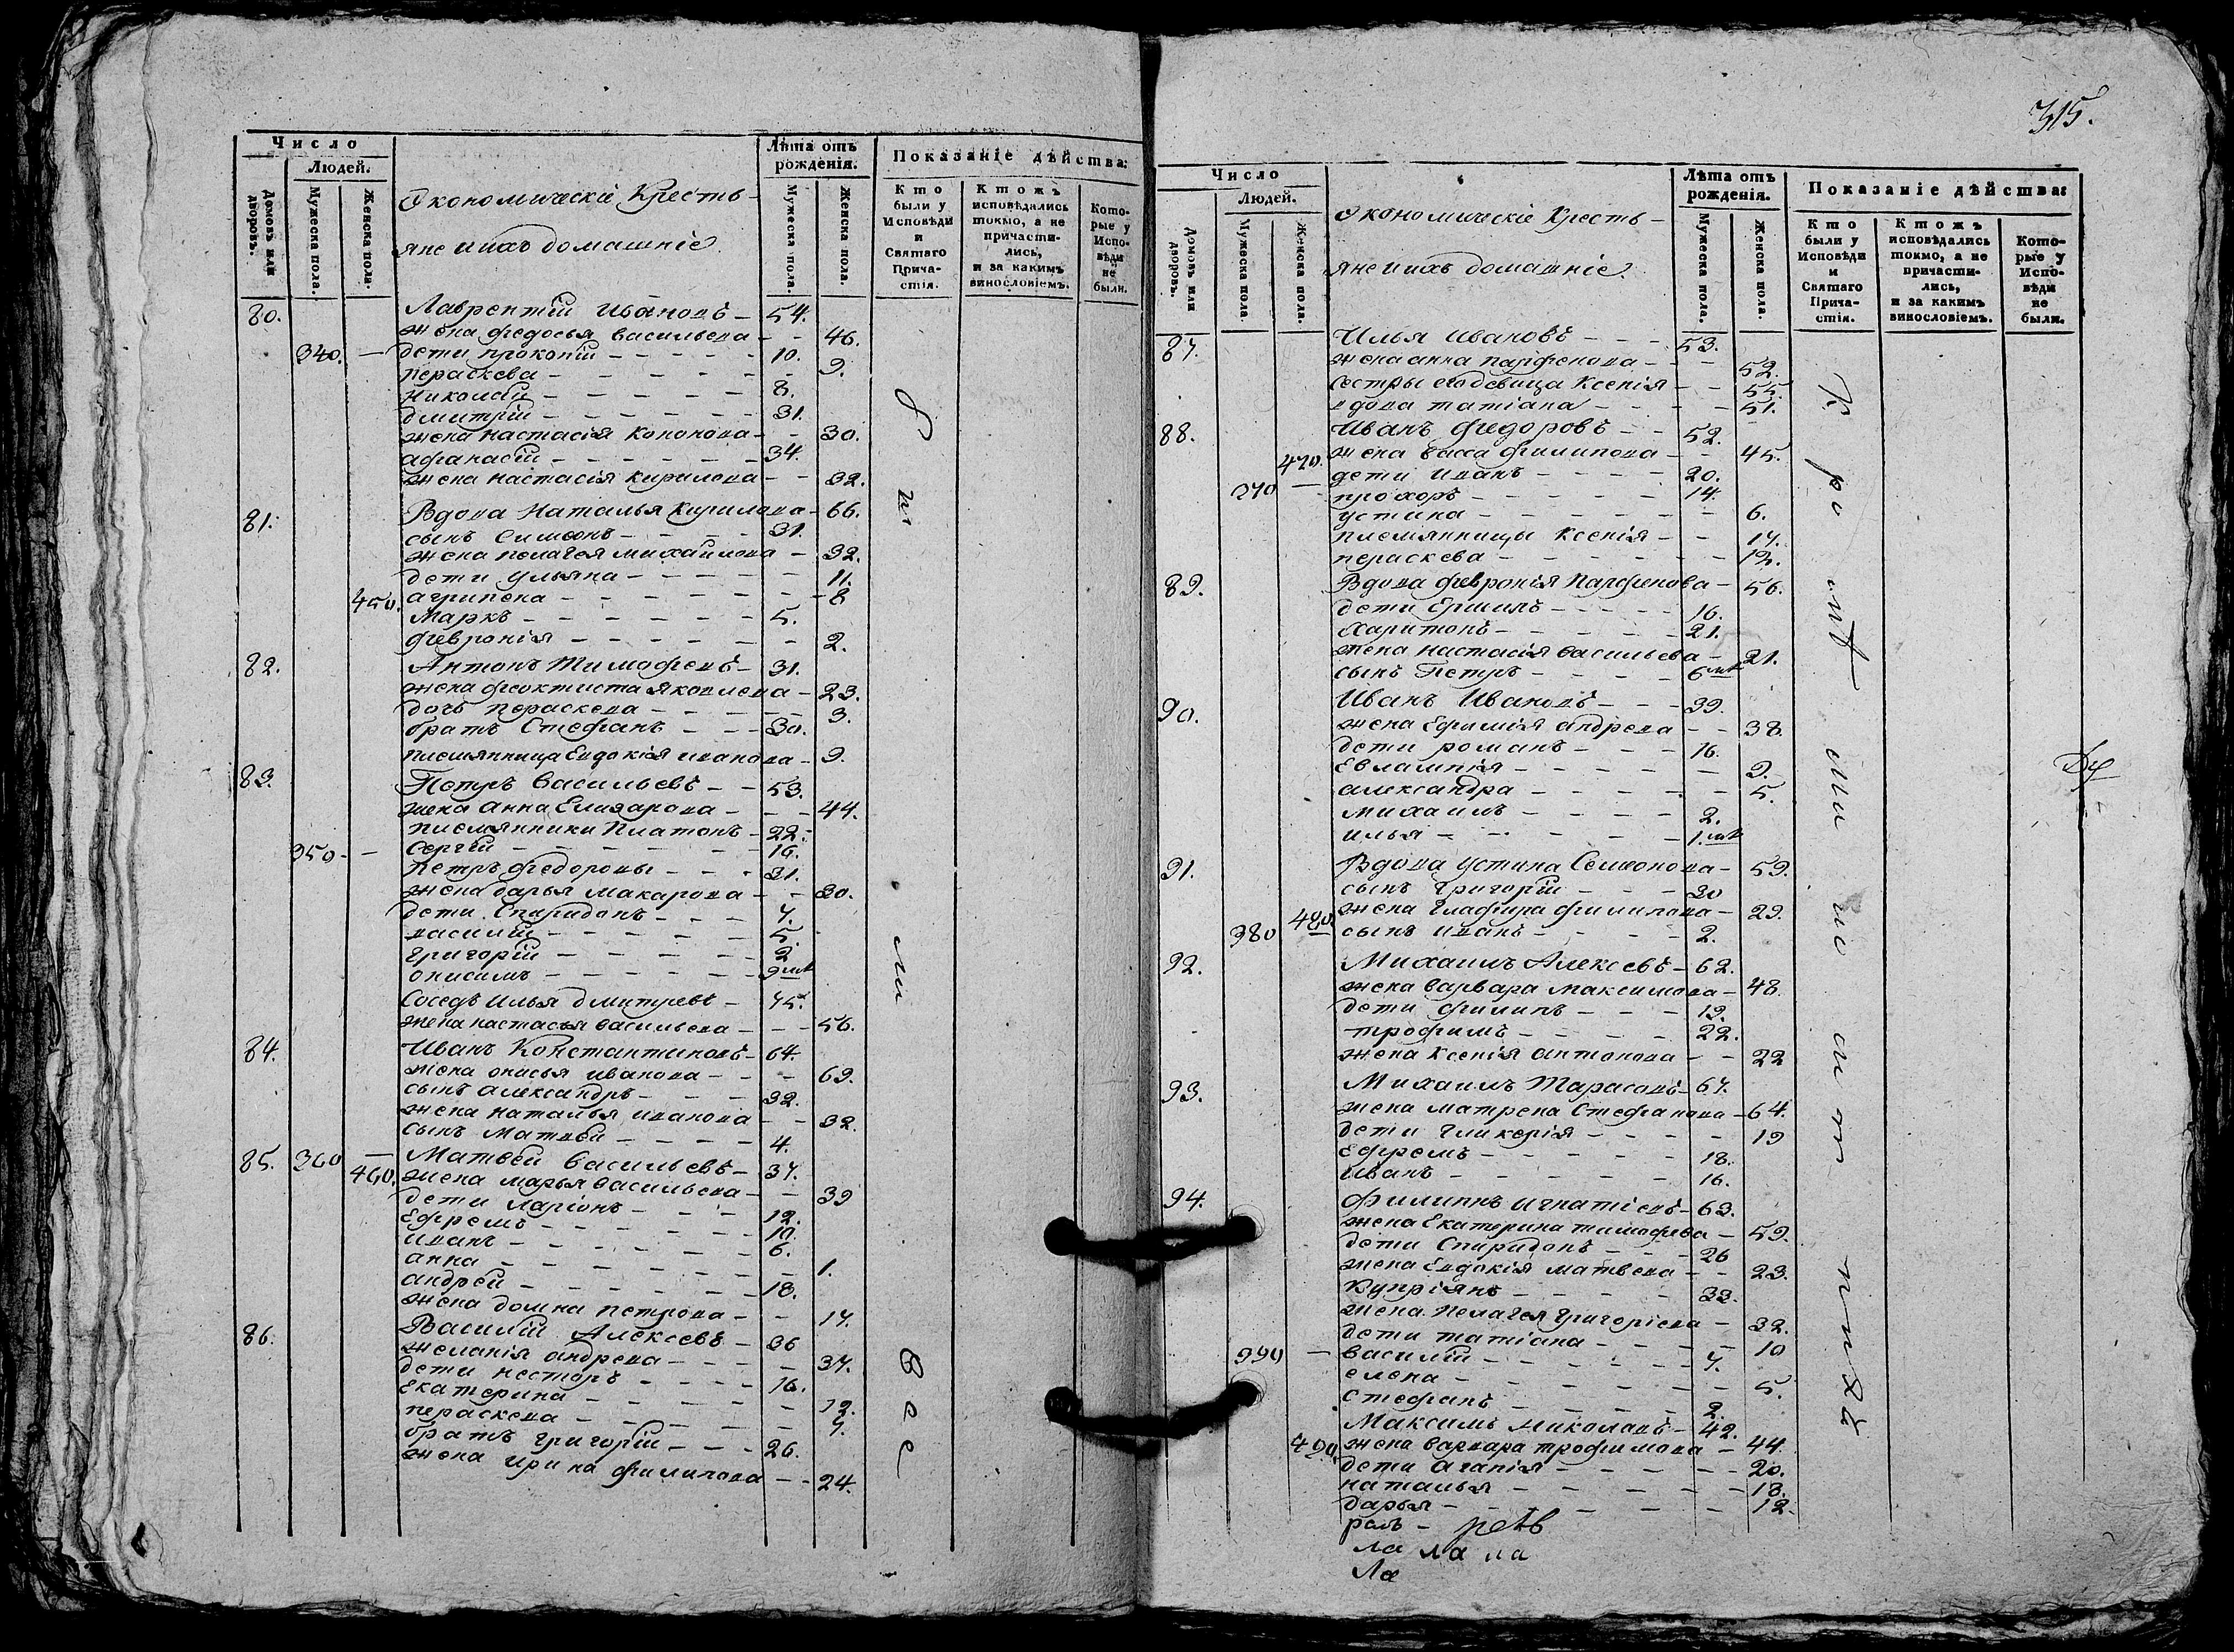 Число
Людей.
Домовъ или дворовъ.
Мужеска пола.
Женска пола.
Экономическіе Кресть-
яне и ихъ домашніе
Лѣта отъ рожденія.
Мужеска пола.
Женска пола.
Показаніе дѣйства:
Кто были у Исповѣди и Святаго Прича-стія.
Ктожъ исповѣдались токмо, а не причасти-лись, и за какимъ винословіемъ.
Кото-рые у Испо-вѣди не были.
80. Лаврентій Ивановъ - 54.
жена федосья васильева - - 46.
340. - дети прокопій - - - - - 10.
пераскева - - - - - - 9.
николай - - - - - 8.
дмитрій - - - - - - 31.
жена настасія кононова - - 30.
афанасій - - - - - - 34.
жена настасія кирилова - - 32.
81. Вдова Наталья Кирилова - 66.
сынъ Симеонъ - - - - 31.
жена пелагея михаилова - 32.
дети ульяна - - - - - - 11.
450. агрипена - - - - - - - 8
Маркъ - - - - - - 5.
февронія - - - - - - 2.
82. Антонъ Тимофеевъ - 31.
жена феоктиста яковлева - 23.
дочь пераскева - - - - - 3.
братъ Стефанъ - - - 30.
племянница Евдокія иванова - 9.
83. Петръ Васильевъ - - 53.
жена анна Елизарова - - - 44.
племянники Платонъ - 22.
350 - - Сергій - - - - - - 16.
Петръ федоровы - - - 31.
жена дарья макарова - - 30.
дети Спиридонъ - - - 7.
василій - - - - - - 5.
григорій - - - - - - 2
онисимъ - - - - - - 9 мц
Соседъ Илья дмитревъ - 75.
жена настасья васильева - - - 56.
84. Иванъ Константиновъ - 64.
жена онисья иванова - - - 69.
сынъ александръ - - - 32.
жена наталья иванова - - 32.
сынъ Матвей - - - - 4.
85. 360 - Матвей Васильевъ - 37.
460. жена марья васильева - - 39
дети ларіонъ - - - 12.
Ефремъ - - - - - - 10.
иванъ - - - - - - 6.
анна - - - - - - - 1.
андрей - - - - - - 18.
жена домна петрова - - 17.
86. Василій Алексеевъ - 36
желанія андрева - - - - 37.
дети несторъ - - - - 16.
Екатерина - - - - - 12.
пераскева - - - - - - 7.
братъ григорій - - - 26.
жена ирина филипова - - 24.
315.
Число
Людей.
Домовъ или дворовъ.
Мужеска пола.
Женска пола.
Экономическіе Кресть-
яне и ихъ домашніе
Лѣта отъ рожденія.
Мужеска пола.
Женска пола.
Показаніе дѣйства:
Кто были у Исповѣди и Святаго Прича-стія.
Ктожъ исповѣдались токмо, а не причасти-лись, и за какимъ винословіемъ.
Кото-рые у Испо-вѣди не были.
87. Илья ивановъ - - - 53.
жена анна парфенова - - - 52.
сестры его девица Ксенія - - 55.
вдова татіана - - - - 51.
88. Иванъ федоровъ - - 52.
470. жена васса филипова - - 45.
370 - дети иванъ - - - - 20.
прохоръ - - - - - 14.
устина - - - - - - - 6.
племянницы Ксенія - - 17.
пераскева - - - - - - - 12.
89. Вдова февронія парфенова - 56.
дети Ермилъ - - - - 16.
Харитонъ - - - - - 21.
жена настасія васильева - 21.
сынъ Петръ - - - - 6 мц
90. Иванъ Ивановъ - - - 39.
жена Ефимія андрева - - 38.
дети романъ - - - 16.
Евлампія - - - - - - 9.
александра - - - - - - 5.
михаилъ - - - - 2.
илья - - - - - - 1. мц
91. Вдова устина Семионова - 59.
сынъ григорій - - - 30
480. жена глафира филипова - 29.
380 - сынъ иванъ - - - - 2.
92. Михаилъ Алексеевъ - 62.
жена варвара максимова - 48.
дети филипъ - - - 19.
трофимъ - - - - - 22.
жена ксенія антонова - - 22
93. Михаилъ Тарасовъ - 67.
жена матрена Стефанова - 64.
дети гликерія - - - - 19
Ефремъ - - - - - - 18.
иванъ - - - - - - 16.
94. Филипъ игнатіевъ - 63.
жена Екатерина тимофева - 59.
дети Спиридонъ - - - 26
жена Евдокія матвеева - - 23.
Купріянъ - - - - - 33.
жена пелагея григоріева - 32.
дети татіана - - - - - 10
390 - василій - - - - - - 7.
елена - - - - - - - 5.
стефанъ - - - - - 2.
Максимъ николаевъ - 42.
490. жена варвара трофимова - 44.
дети агапія - - - - - 20.
наталья - - - - - - 18.
дарья - - - - - - - 12.